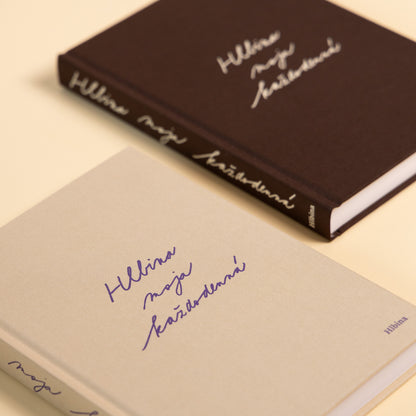 Hlbina
moja
každodenná
Hlbina moja každodenná
Hlbina
Hlbina
moja
každodenná
Hlbina
moja